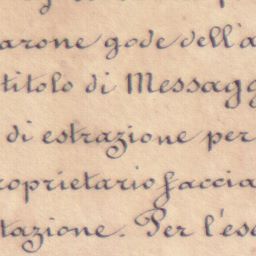 arone gode dell'a
titolo di Messagg
di estrazione per
roprietario faccia
tazione. Per l'es